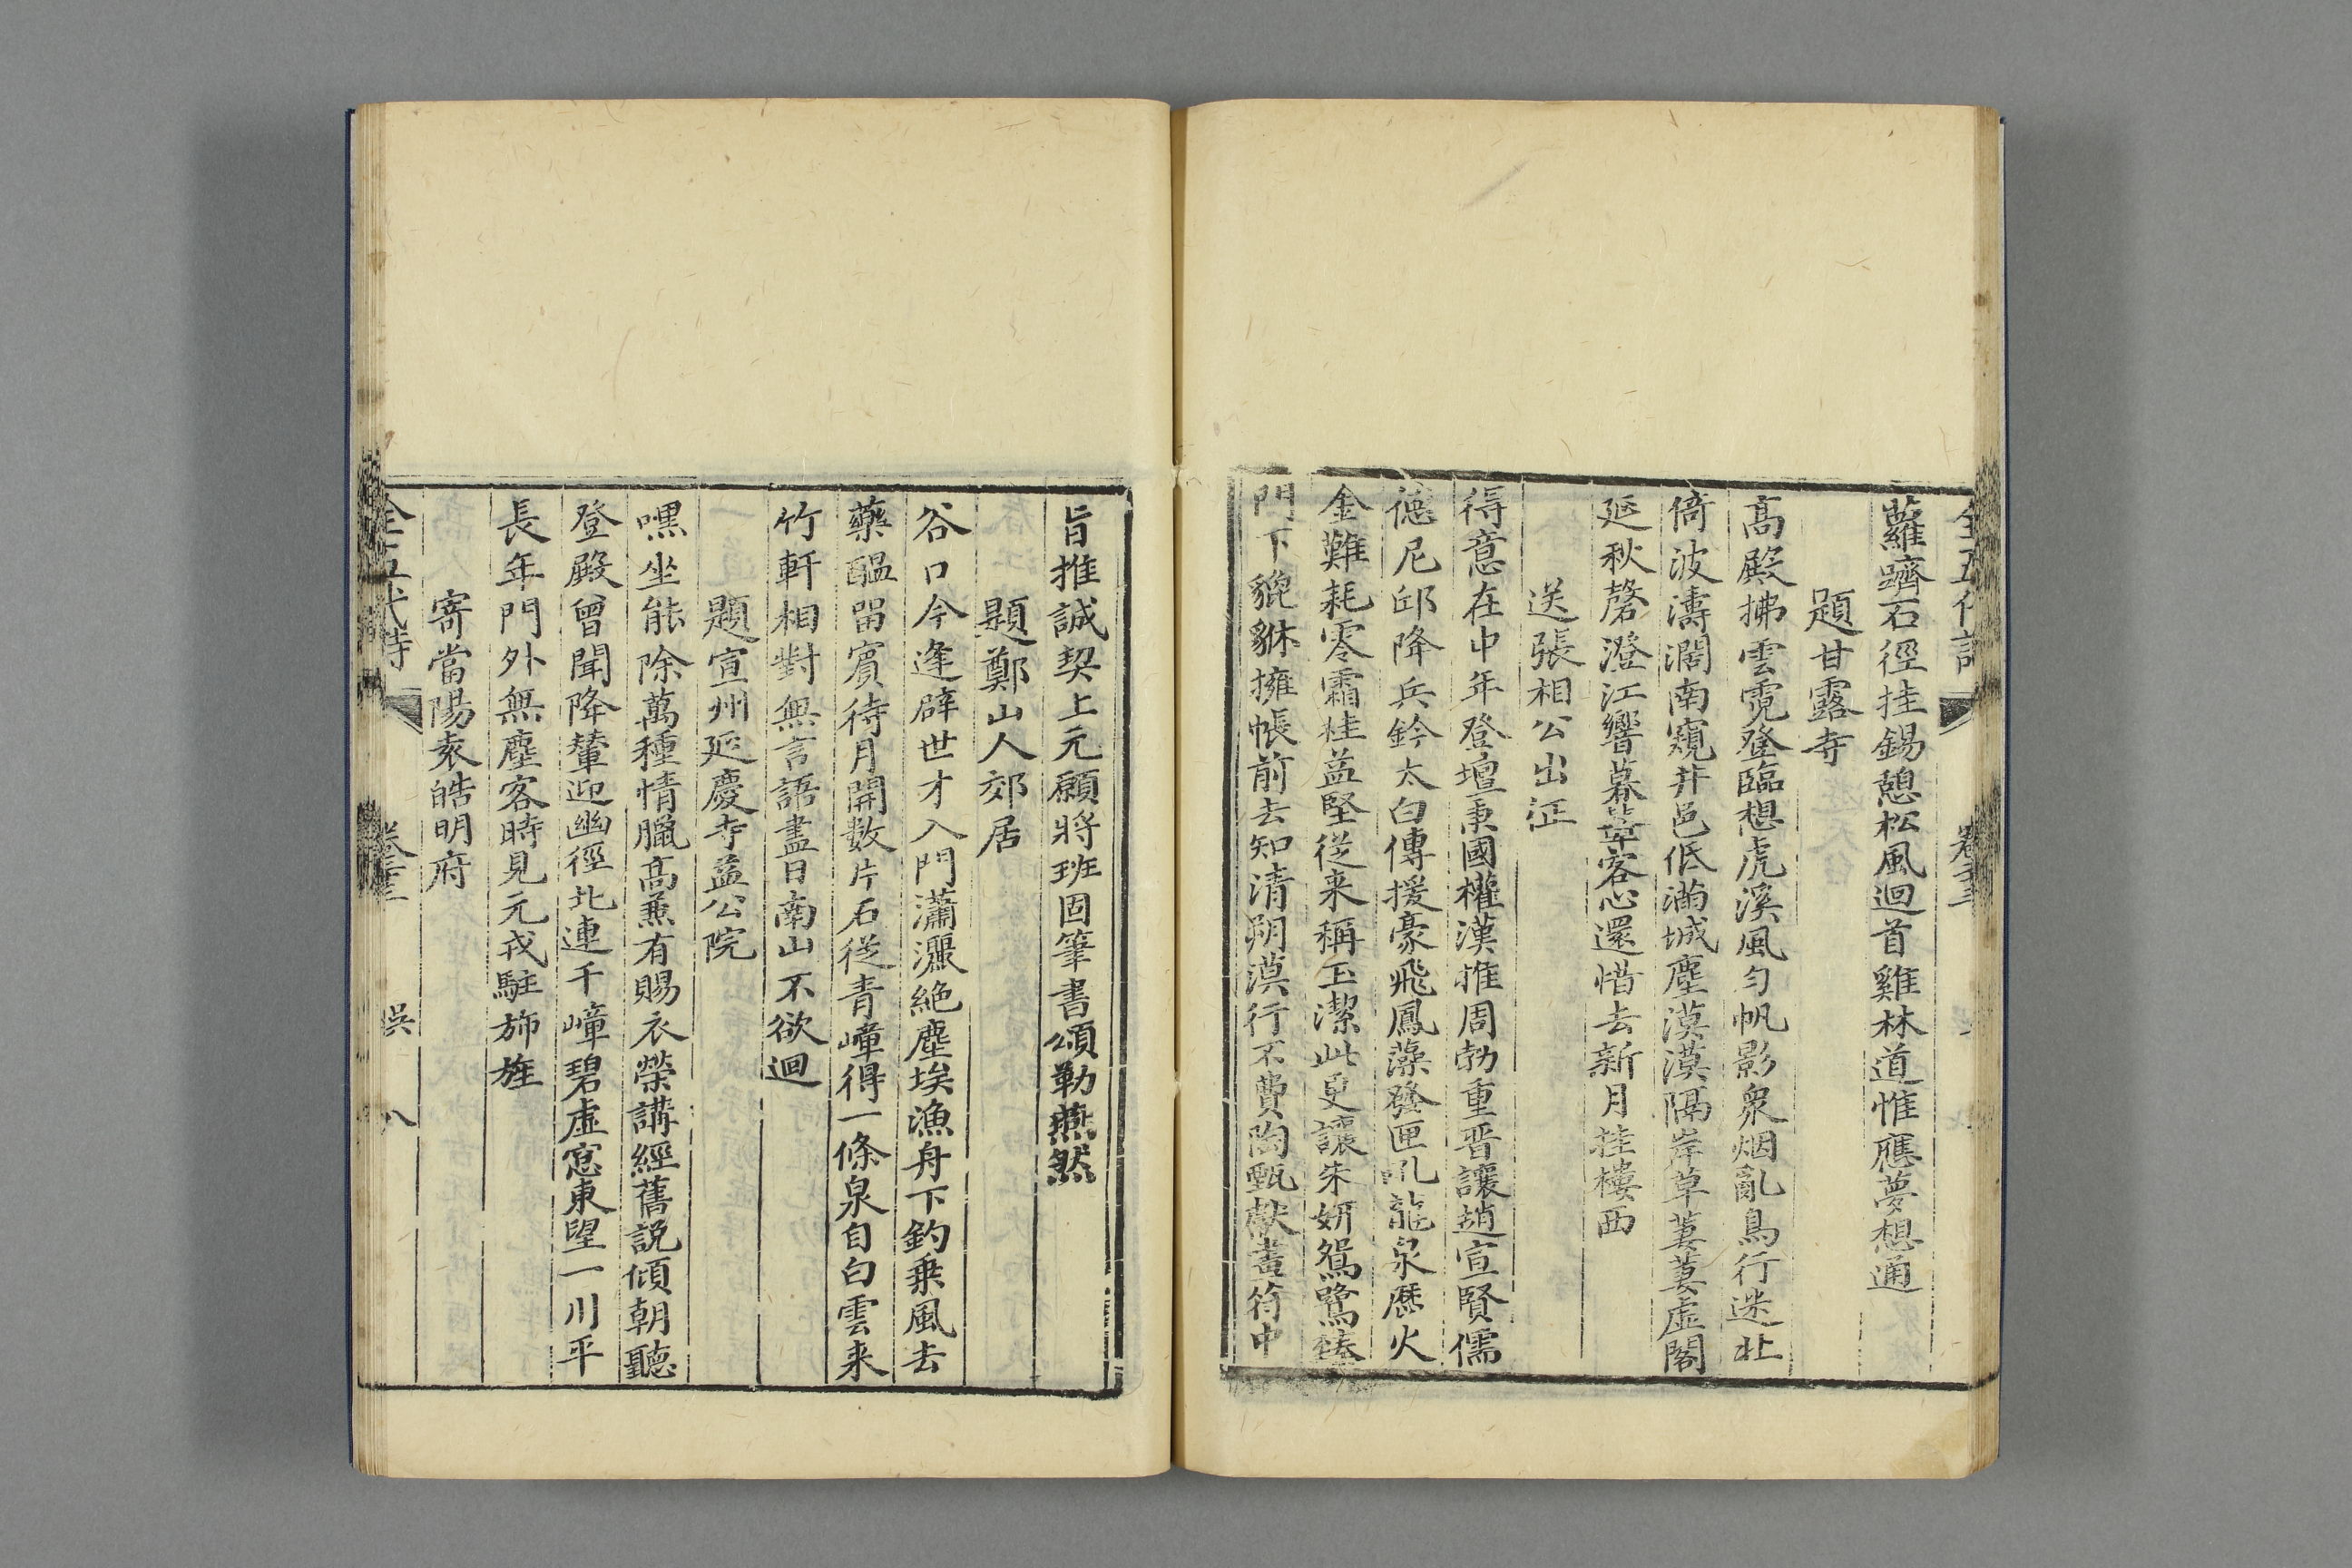 蘿躋石徑挂錫憩松風迴首雞林道惟應夢想通
題甘露寺
高殿拂雲霓登臨想虎溪風勻帆影衆烟亂鳥行迷北
倚波濤濶南窺井邑低滿城塵漠漠隔岸草萋萋虛閣
延秋磬澄江響暮鼙客心還惜去新月挂樓西
送張相公出征
得意在中年登壇秉國權漢推周勃重晋讓趙宣賢儒
德尼邱降兵鈐太白傳援豪飛鳳藻發匣吼龍泉歷火
金難耗零霜桂益堅從来稱玉潔此更讓朱妍鴛鷺臻
門下貔貅擁帳前去知清朔漠行不費陶甄獻畫符中
旨推誠契上元願將班固筆書頌勒燕然
題鄭山人郊居
谷口今逢辟世才入門瀟灑絶塵埃漁舟下釣乗風去
藥醖畱賓待月開数片石從青嶂得一條泉自白雲来
竹軒相對無言語盡日南山不欲迴
題宣州延慶寺益公院
嘿坐能除萬種情臘高兼有賜衣榮講經舊説傾朝聽
登殿曾聞降輦迎幽徑北連千嶂碧虛窓東望一川平
長年門外無塵客時見元戎駐斾旌
寄當陽袁皓明府
全五代詩 卷三十三 吳 八